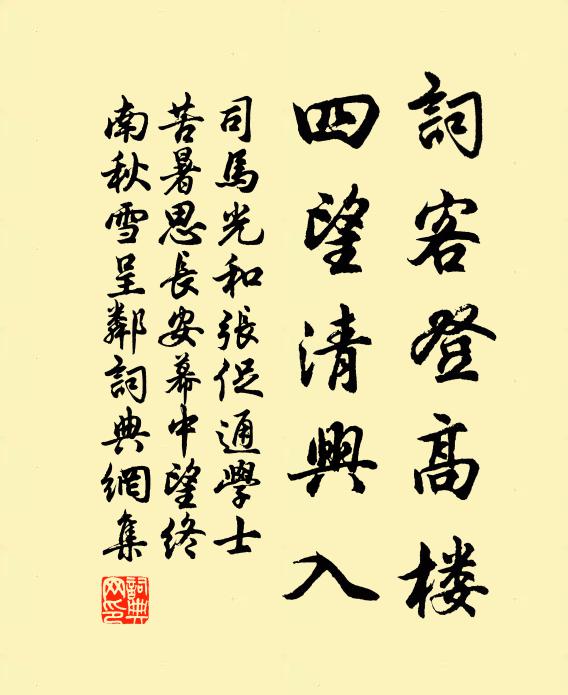 詞客登高楼
四望清興入
司馬光和張促通學士
苦暑思長安幕中望終
南秋雪呈鄰詞典網集
詞典
网印